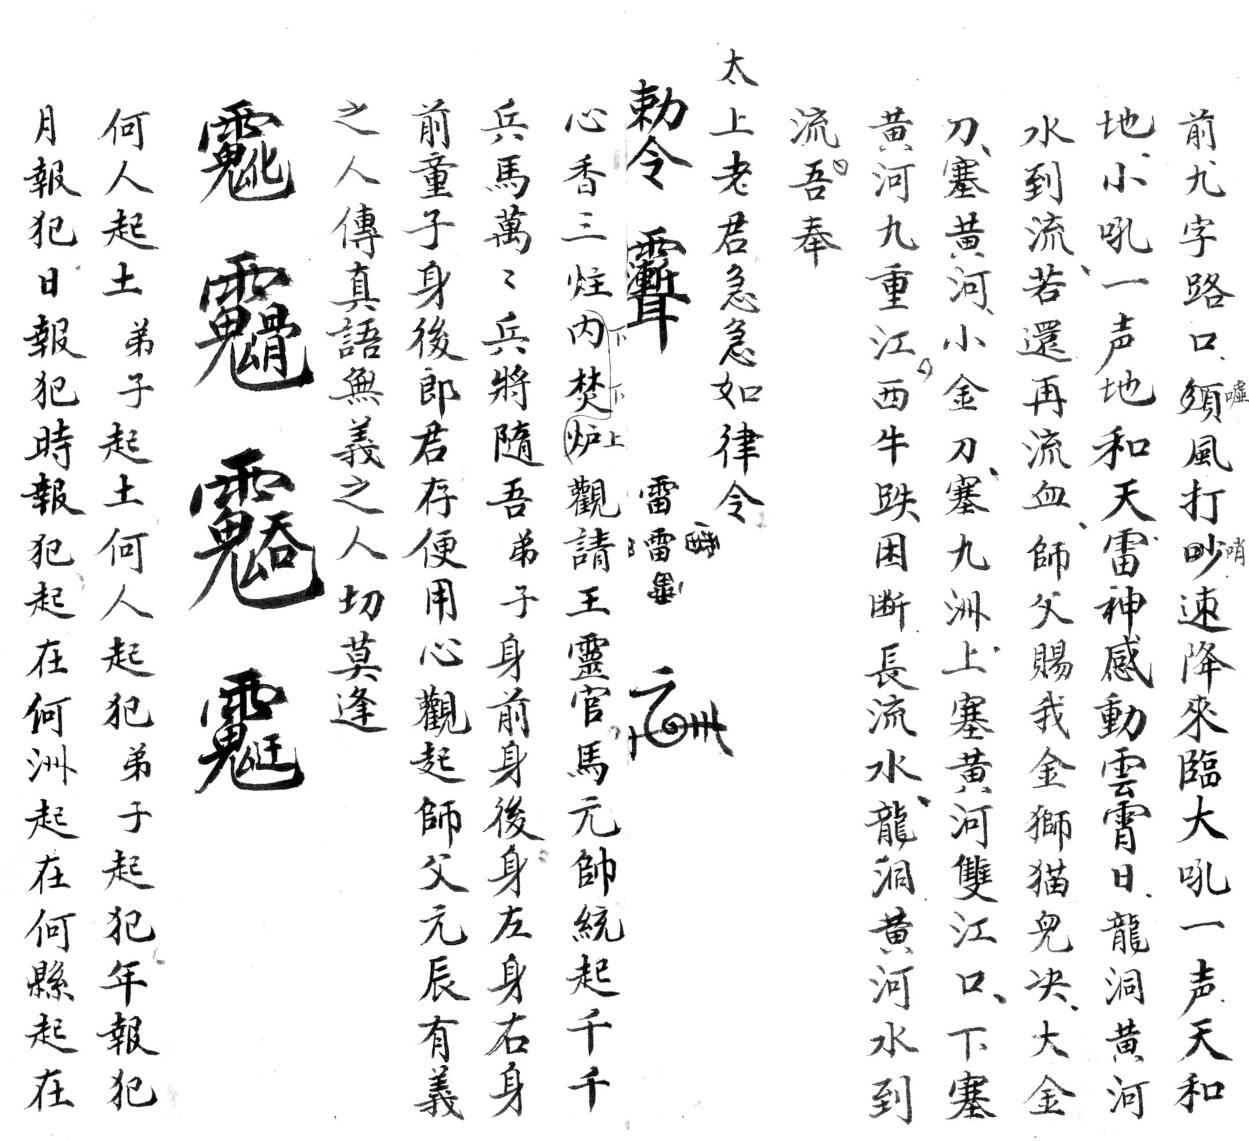 前九字路口須風打吵速降來臨大吼一声天和
噓 哨
地小吼一声地和天雷神感動雲霄日龍洞黃河
水到流若還再流血師父賜我金獅猫兒决大金
刀塞黃河小金刀塞九洲上塞黃河雙江口下塞
黃河九重江西牛跌困断長流水龍洞黃河水到
流吾奉
太上老君急急如律令
勅令 雷雷
心香三炷内焚炉觀請王靈官馬元帥統起千千
下下上
兵馬萬〻兵將隨吾弟子身前身後身左身右身
前童子身後郎君存便用心觀起師父元辰有義
之人傳真語無義之人切莫逢
何人起土弟子起土何人起犯弟子起犯年報犯
月報犯日報犯時報犯起在何洲起在何縣起在